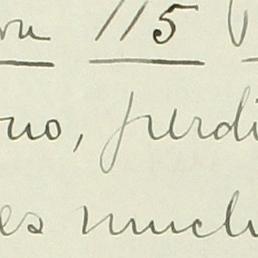 115
no, perdi
es much